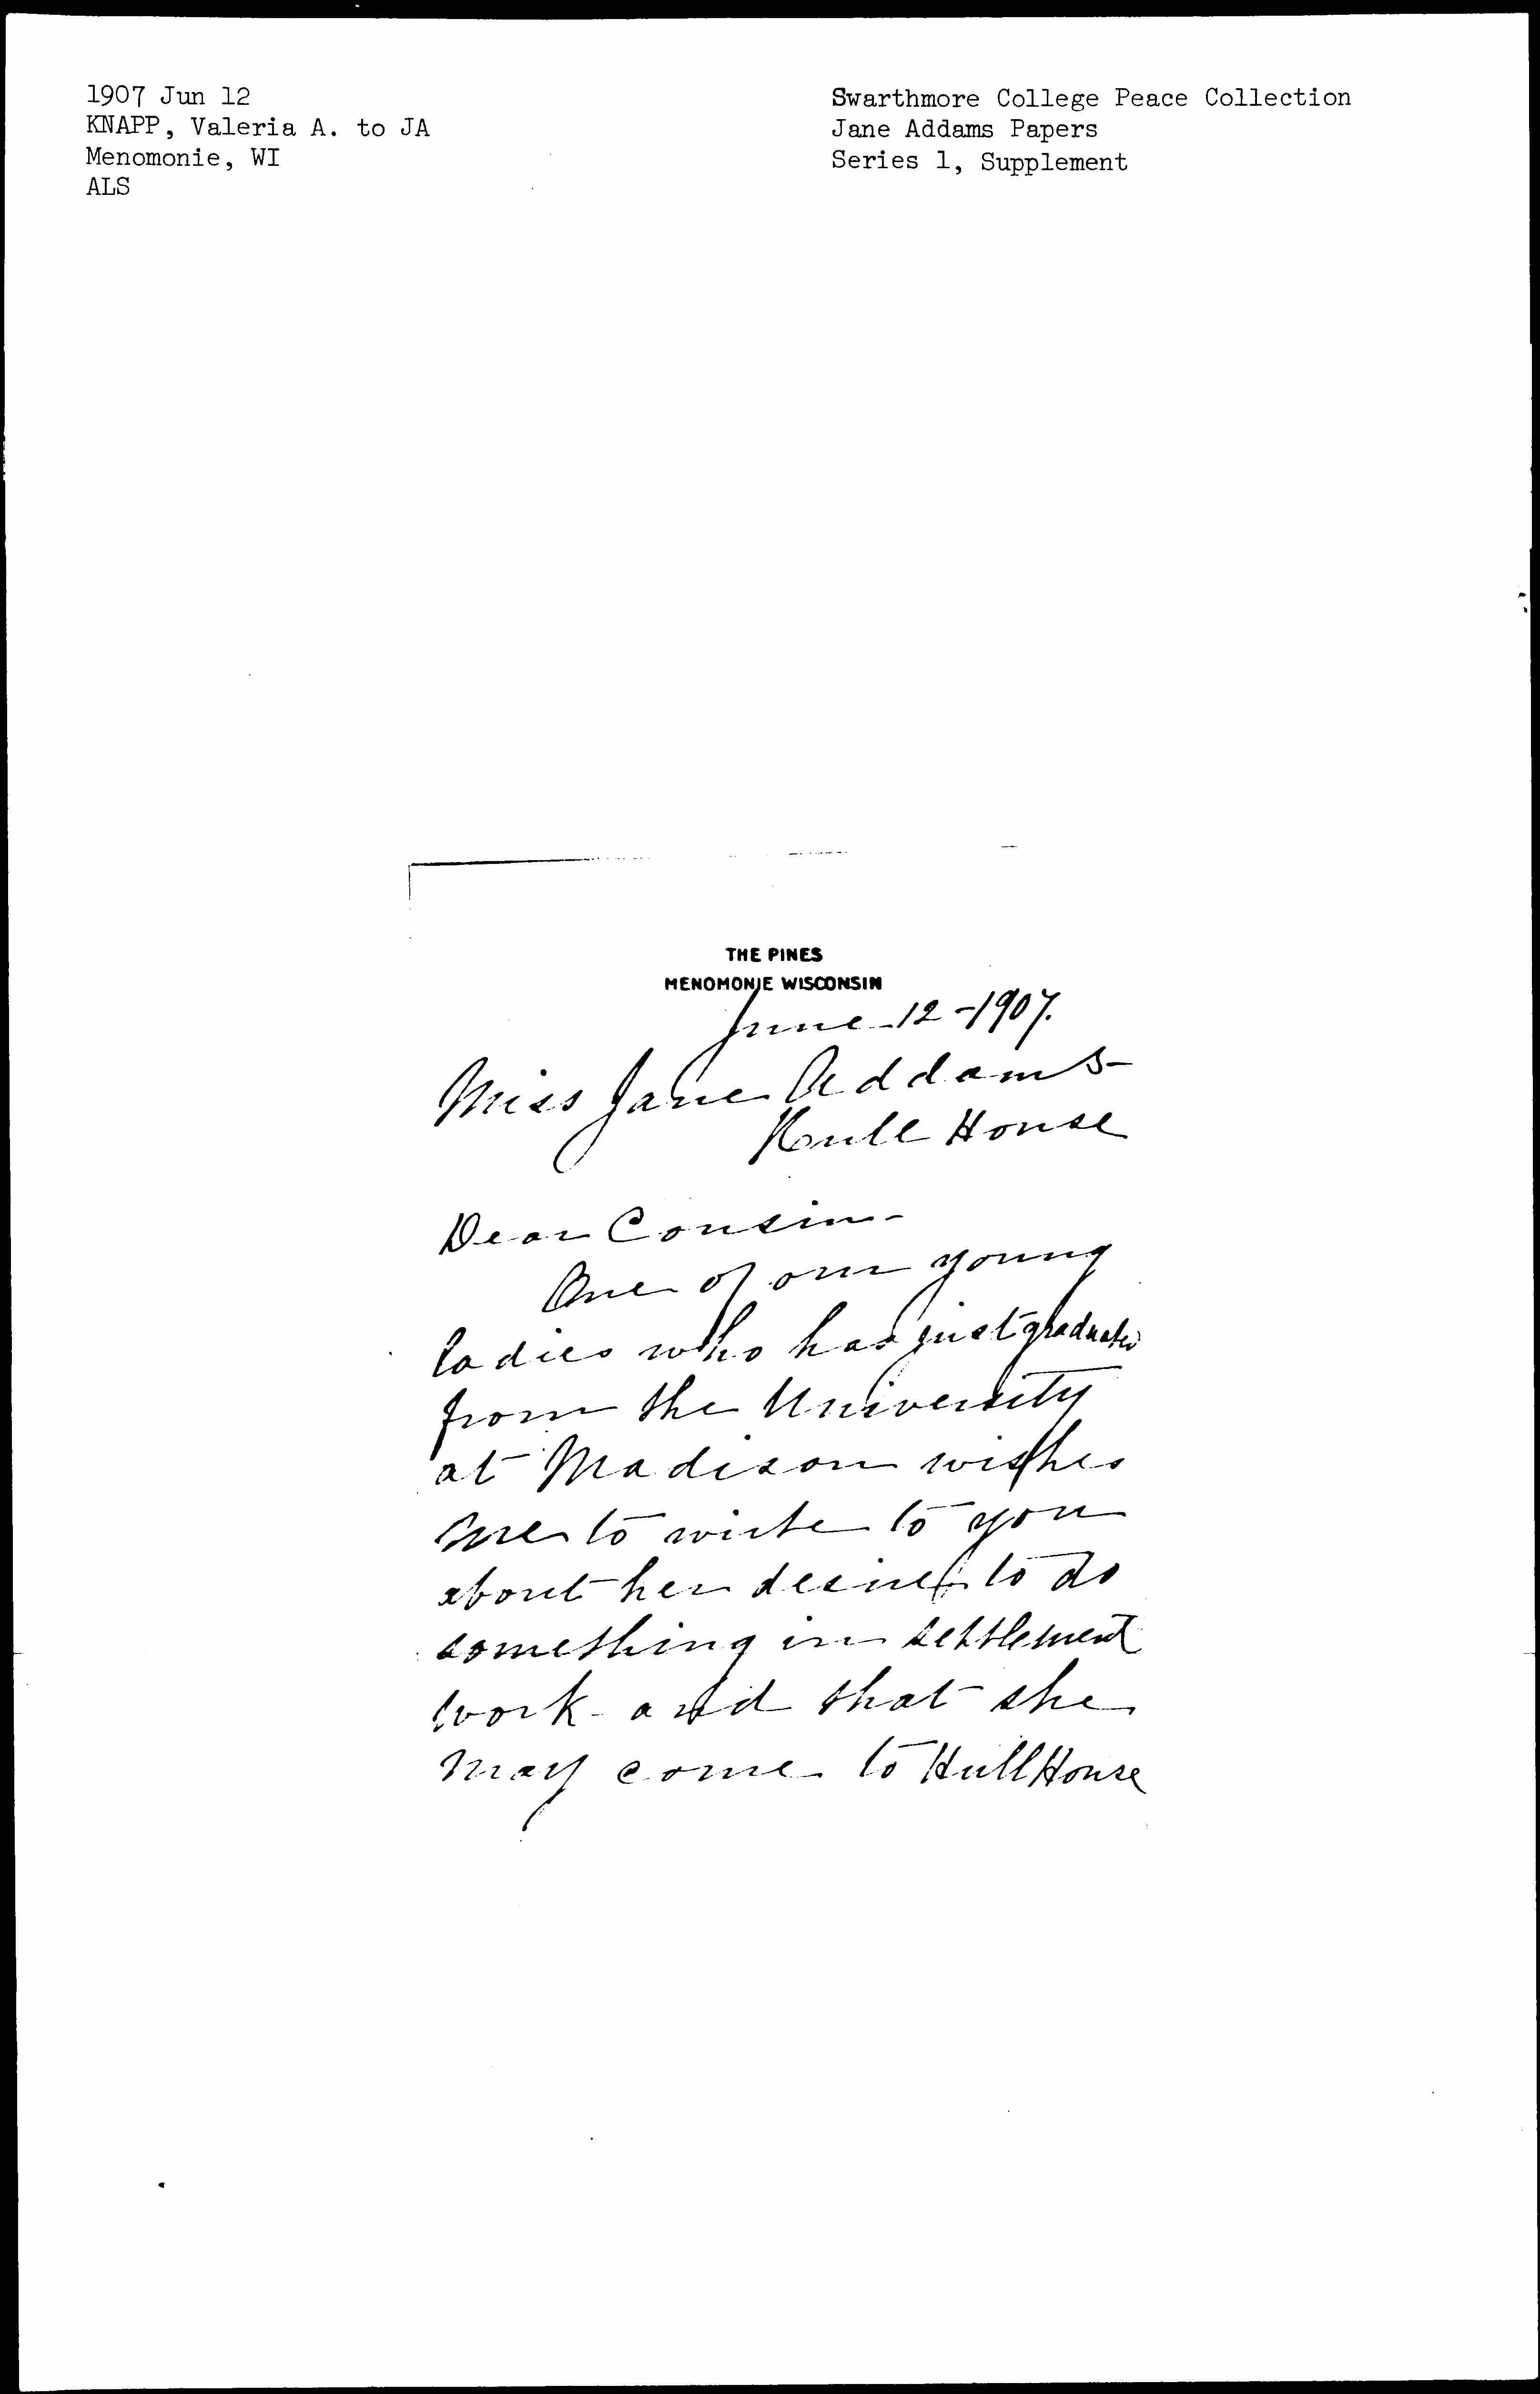 1907 Jun 12
KNAPP, Valeria A. to JA
Menomonie, WI
ALS
Swarthmore College Peace Collection
Jane Addams Papers
Series 1, Supplement
THE PINES
MENOMONIE WISCONSIN
June 12-1907.
Miss Jane Addams
Hull House
Dear Cousin-
One of our young
ladies who has just graduated
from the University
at Madison wishes
me to write to you
about her desire to do
something in settlement
work- and that she
may come to Hull House